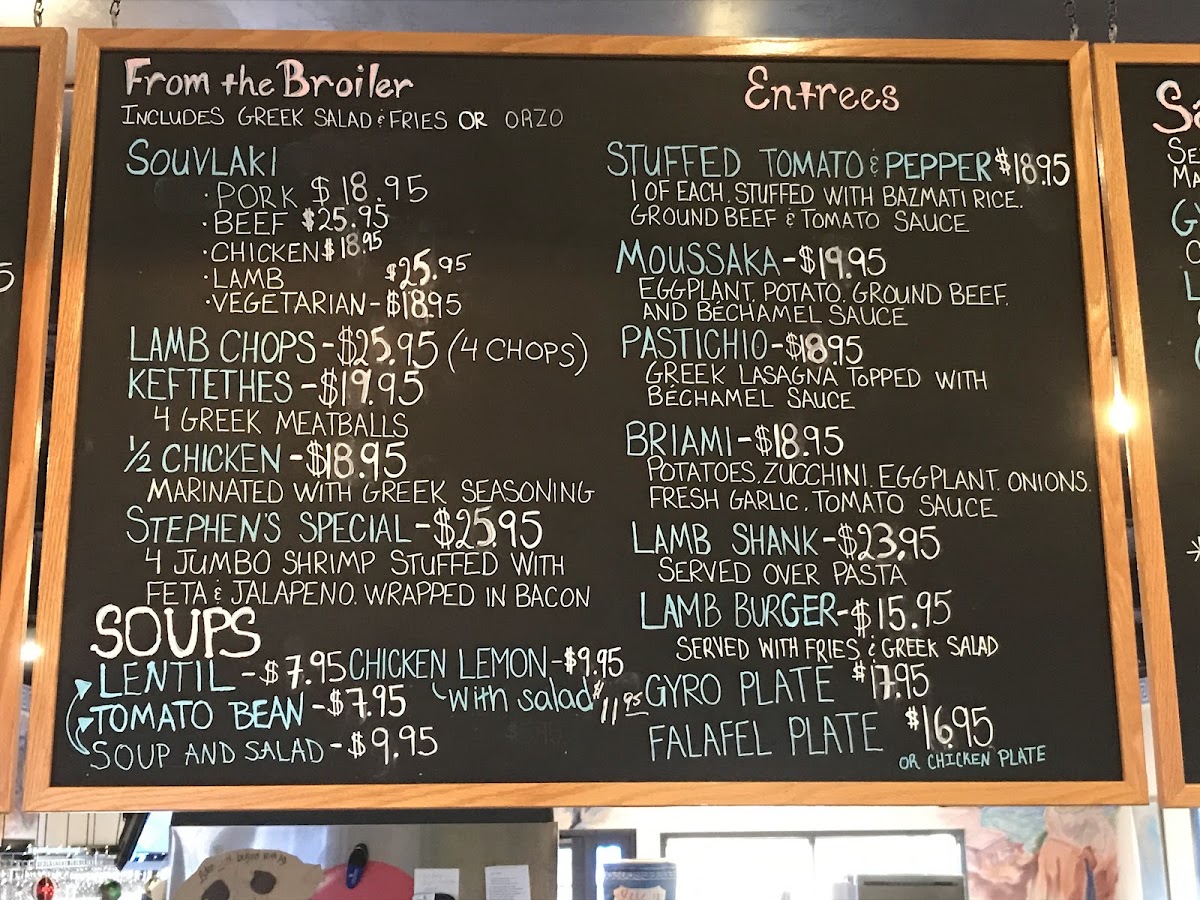 From the Broiler
INCLUDES GREEK SALAD & FRIES OR ORZO
SOUVLAKI
· PORK $18.95
· BEEF $25.95
· CHICKEN $18.95
· LAMB $25.95
· VEGETARIAN - $18.95
LAMB CHOPS - $25.95 (4 CHOPS)
KEFTETHES - $19.95
4 GREEK MEATBALLS
1/2 CHICKEN - $18.95
MARINATED WITH GREEK SEASONING
STEPHEN'S SPECIAL - $25.95
4 JUMBO SHRIMP STUFFED WITH
FETA & JALAPENO. WRAPPED IN BACON
SOUPS
LENTIL - $7.95
TOMATO BEAN - $7.95
SOUP AND SALAD - $9.95
CHICKEN LEMON - $9.95
with salad $11.95
Entrees
STUFFED TOMATO & PEPPER $18.95
1 OF EACH. STUFFED WITH BAZMATI RICE.
GROUND BEEF & TOMATO SAUCE
MOUSSAKA - $19.95
EGGPLANT. POTATO. GROUND BEEF.
AND BÉCHAMEL SAUCE
PASTICHIO - $18.95
GREEK LASAGNA TOPPED WITH
BÉCHAMEL SAUCE
BRIAMI - $18.95
POTATOES. ZUCCHINI. EGGPLANT. ONIONS.
FRESH GARLIC. TOMATO SAUCE
LAMB SHANK - $23.95
SERVED OVER PASTA
LAMB BURGER - $15.95
SERVED WITH FRIES & GREEK SALAD
GYRO PLATE $17.95
FALAFEL PLATE $16.95
OR CHICKEN PLATE